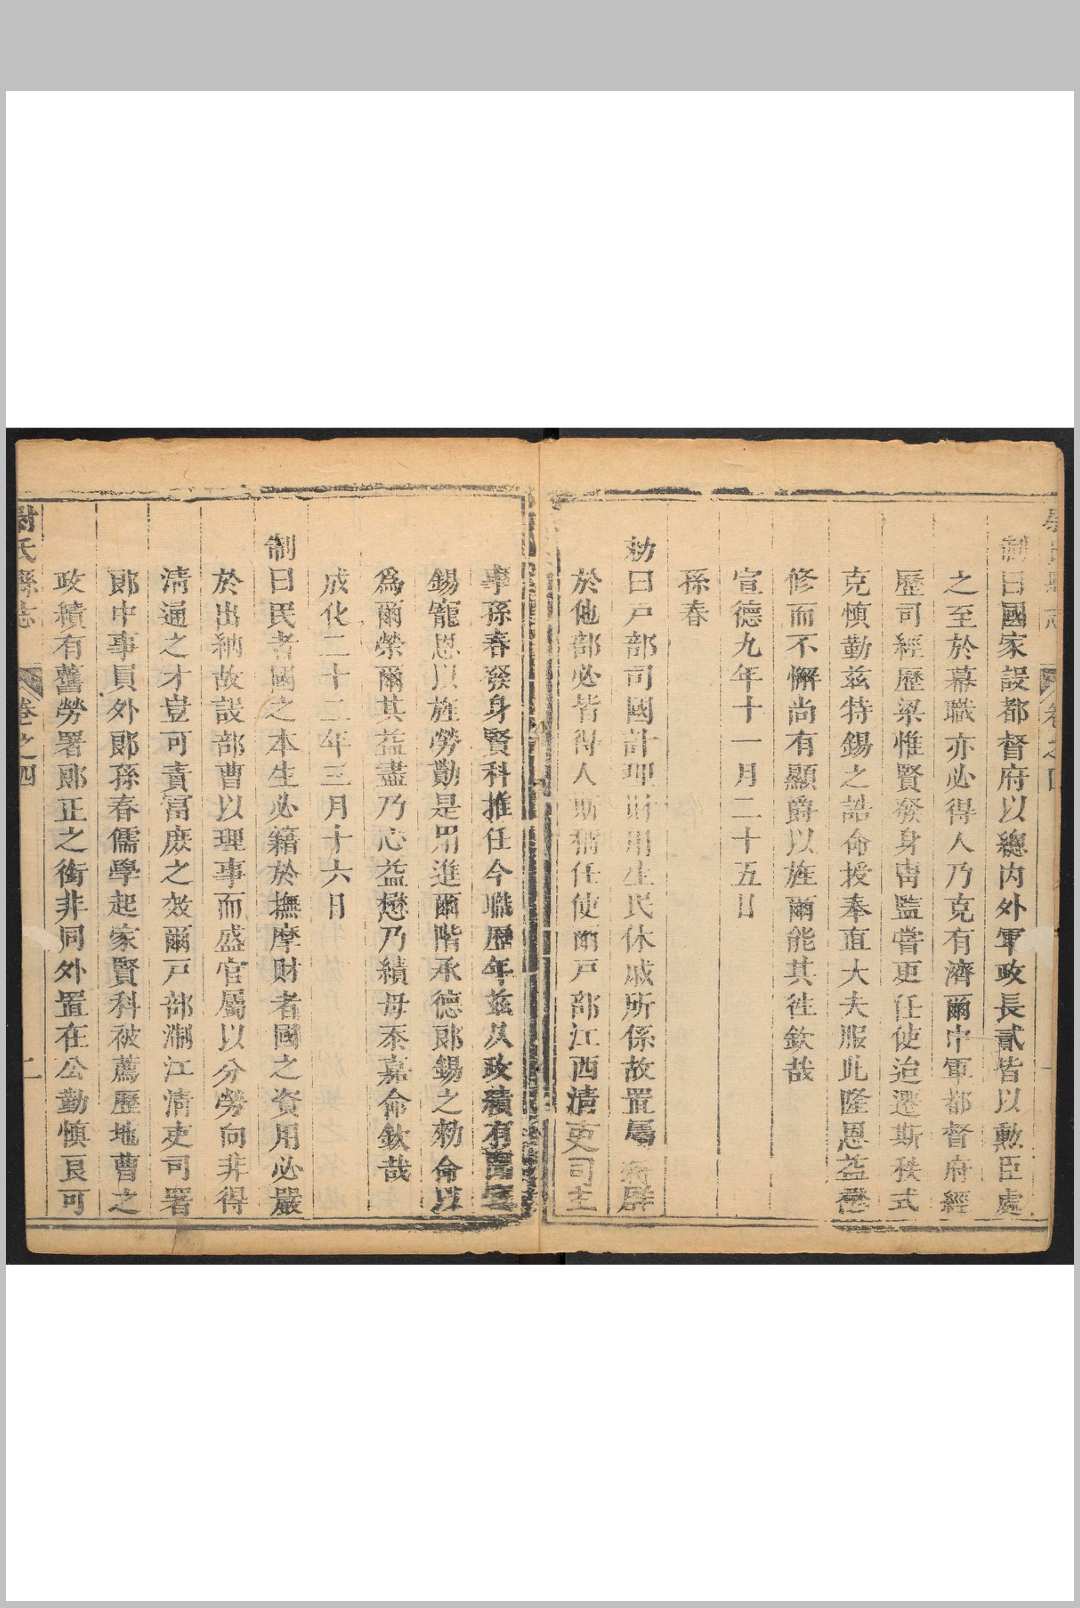 制曰國家設都督府以總内外軍政長貳皆以勲臣處
之至於幕職亦必得人乃克有濟爾中軍都督府經
歷司經歷梁惟賢發身胄監嘗更任使迨遷斯秩式
克慎勤兹特錫之誥命授奉直大夫服此隆恩益懋
修而不懈尚有顯爵以旌爾能其徃欽哉
宣德九年十一月二十五日
孫春
勑曰戸部司國計理財用生民休戚所係故置屬
於他部必皆得人斯稱任使爾戸部江西清吏司主
事孫春發身賢科推任今職歷年兹久政績有
錫寵恩以旌勞勩是用進爾階承德郎錫之勑命以
爲爾榮爾其益盡乃心益懋乃績毋忝嘉命欽哉
成化二十二年三月十六日
制曰民者國之本生必籍於撫摩財者國之資用必嚴
於出納故設部曹以理事而盛官屬以分勞向非得
清通之才豈可責富庶之效爾戸部浙江清吏司署
郎中事員外郎孫春儒學起家賢科被薦歷地曹之
政績有舊勞署郎正之銜非同外置在公勤慎良可
尉氏縣志
卷之四
二